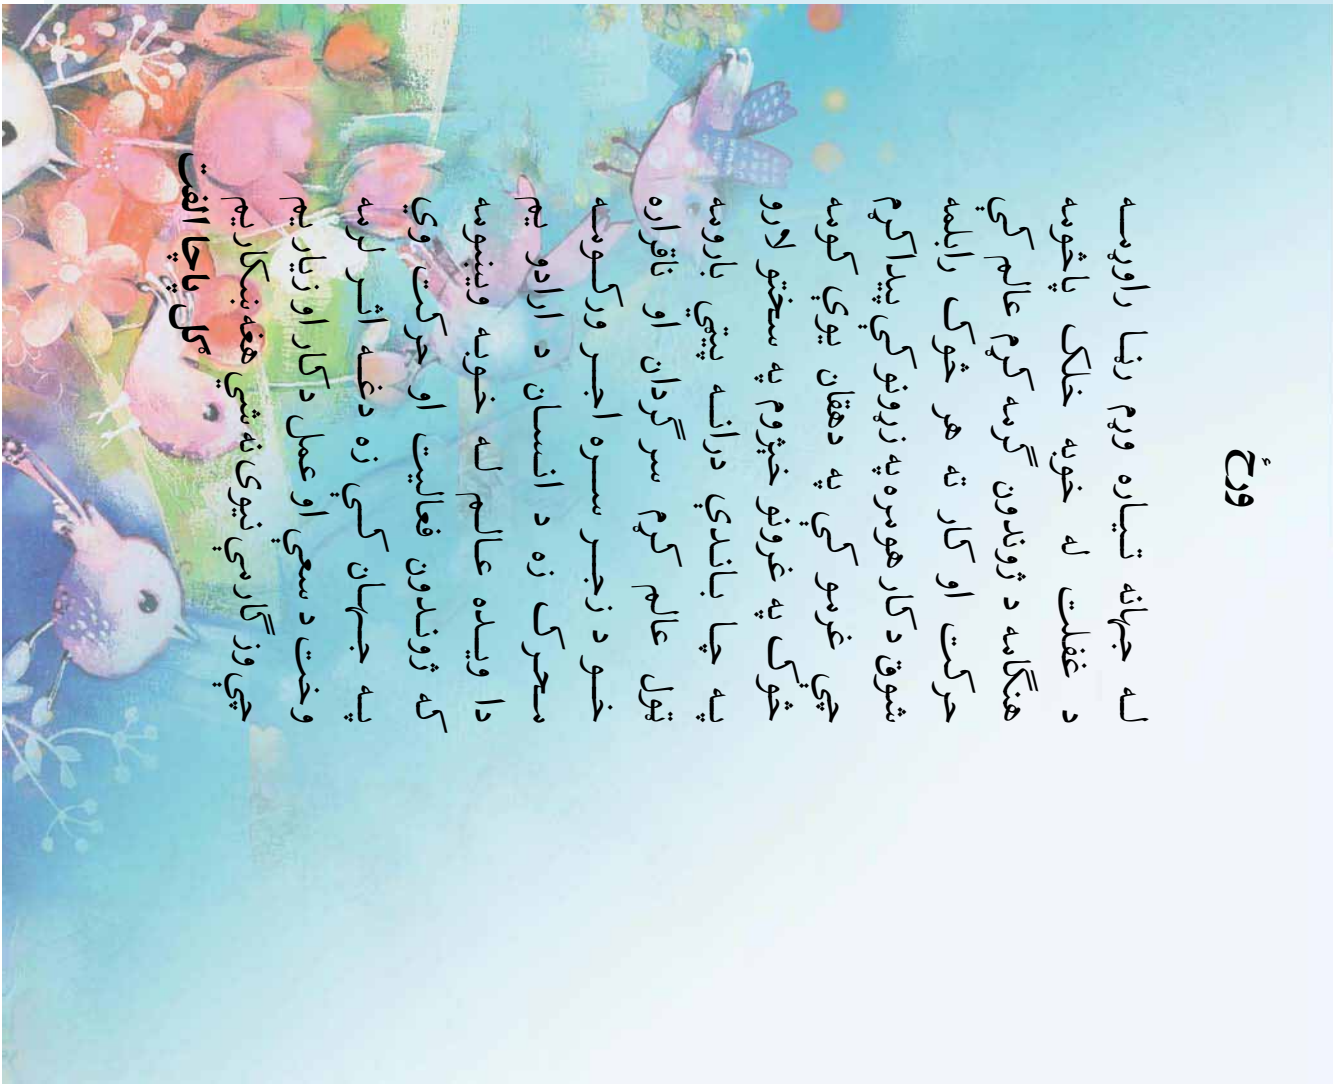 ورځ
له جهانه تياره وړم رڼا راوړمـه
د غفلت له خوبه خلک پاڅومه
هنګامه د ژوندون ګرمه کړم عالم کې
حرکت او کار ته هر څوک رابلمه
شوق د کار هومره په زړونو کې پيدا کړم
چې غرمو کې په دهقان يوې کومه
څوک په غرونو خېژوم په سختو لارو
په چا باندې درانه پېټي بارومه
ټول عالم کړم سر ګردان او ناقراره
خـو د زجـر سـره اجـر ورکـومـه
محرک زه د انسان د ارادو يم
دا ويـده عالـم لـه خـوبه ويښومه
که ژوندون فعاليت او حرکت وي
په جهان کـې زه دغـه اثـر لرمه
وخت د سعيې او عمل د کار او زيار يم
چې وزګار مې نيوی نه شي هغه ښکار يم
ګل پاچا الفت